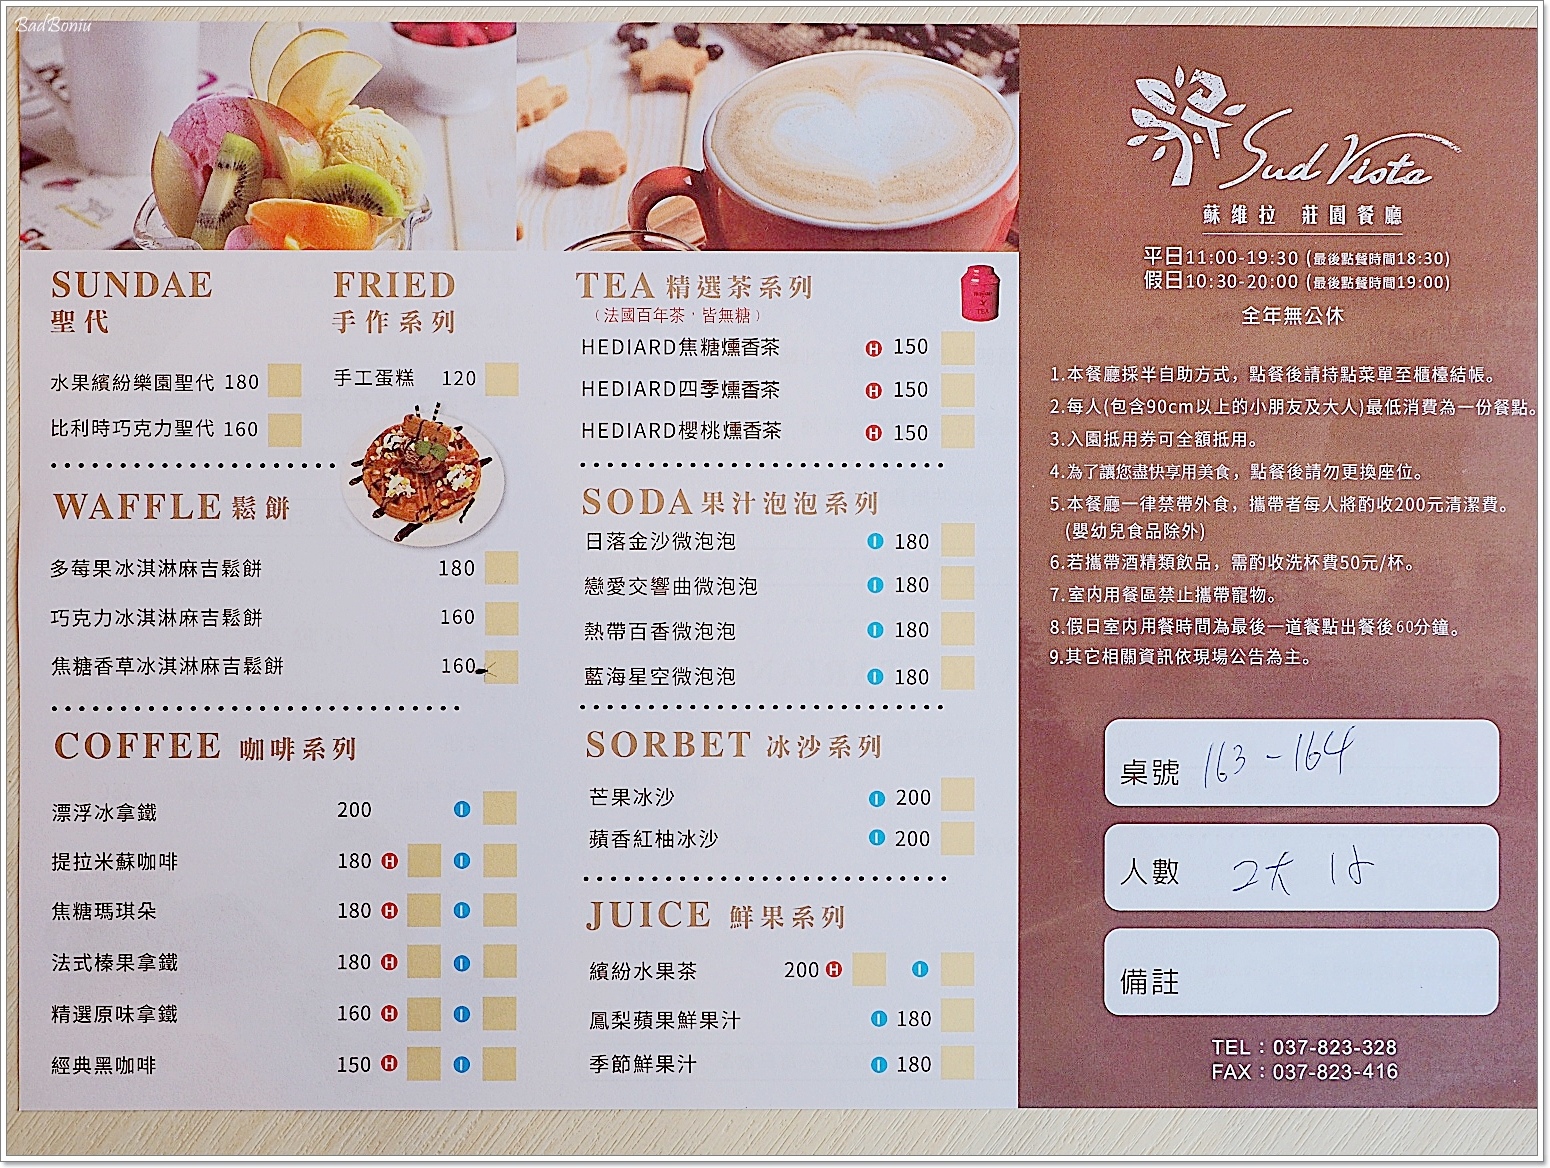 BadBoniu
SUNDAE
聖代
水果繽紛樂園聖代 180
比利時巧克力聖代 160
FRIED
手作系列
手工蛋糕 120
WAFFLE 鬆餅
多莓果冰淇淋麻吉鬆餅 180
巧克力冰淇淋麻吉鬆餅 160
焦糖香草冰淇淋麻吉鬆餅 160
COFFEE 咖啡系列
漂浮冰拿鐵 200 I
提拉米蘇咖啡 180 H I
焦糖瑪琪朵 180 H I
法式榛果拿鐵 180 H I
精選原味拿鐵 160 H I
經典黑咖啡 150 H I
TEA 精選茶系列
（法國百年茶，皆無糖）
TEA
HEDIARD焦糖燻香茶 H 150
HEDIARD四季燻香茶 H 150
HEDIARD櫻桃燻香茶 H 150
SODA 果汁泡泡系列
日落金沙微泡泡 I 180
戀愛交響曲微泡泡 I 180
熱帶百香微泡泡 I 180
藍海星空微泡泡 I 180
SORBET 冰沙系列
芒果冰沙 I 200
蘋香紅柚冰沙 I 200
JUICE 鮮果系列
繽紛水果茶 200 H I
鳳梨蘋果鮮果汁 I 180
季節鮮果汁 I 180
Sud Vista
蘇維拉 莊園餐廳
平日11:00-19:30 (最後點餐時間18:30)
假日10:30-20:00 (最後點餐時間19:00)
全年無公休
1.本餐廳採半自助方式，點餐後請持點菜單至櫃檯結帳。
2.每人(包含90cm以上的小朋友及大人)最低消費為一份餐點。
3.入園抵用券可全額抵用。
4.為了讓您盡快享用美食，點餐後請勿更換座位。
5.本餐廳一律禁帶外食，攜帶者每人將酌收200元清潔費。
(嬰幼兒食品除外)
6.若攜帶酒精類飲品，需酌收洗杯費50元/杯。
7.室內用餐區禁止攜帶寵物。
8.假日室內用餐時間為最後一道餐點出餐後60分鐘。
9.其它相關資訊依現場公告為主。
桌號 163-164
人數 2大 1小
備註
TEL：037-823-328
FAX：037-823-416